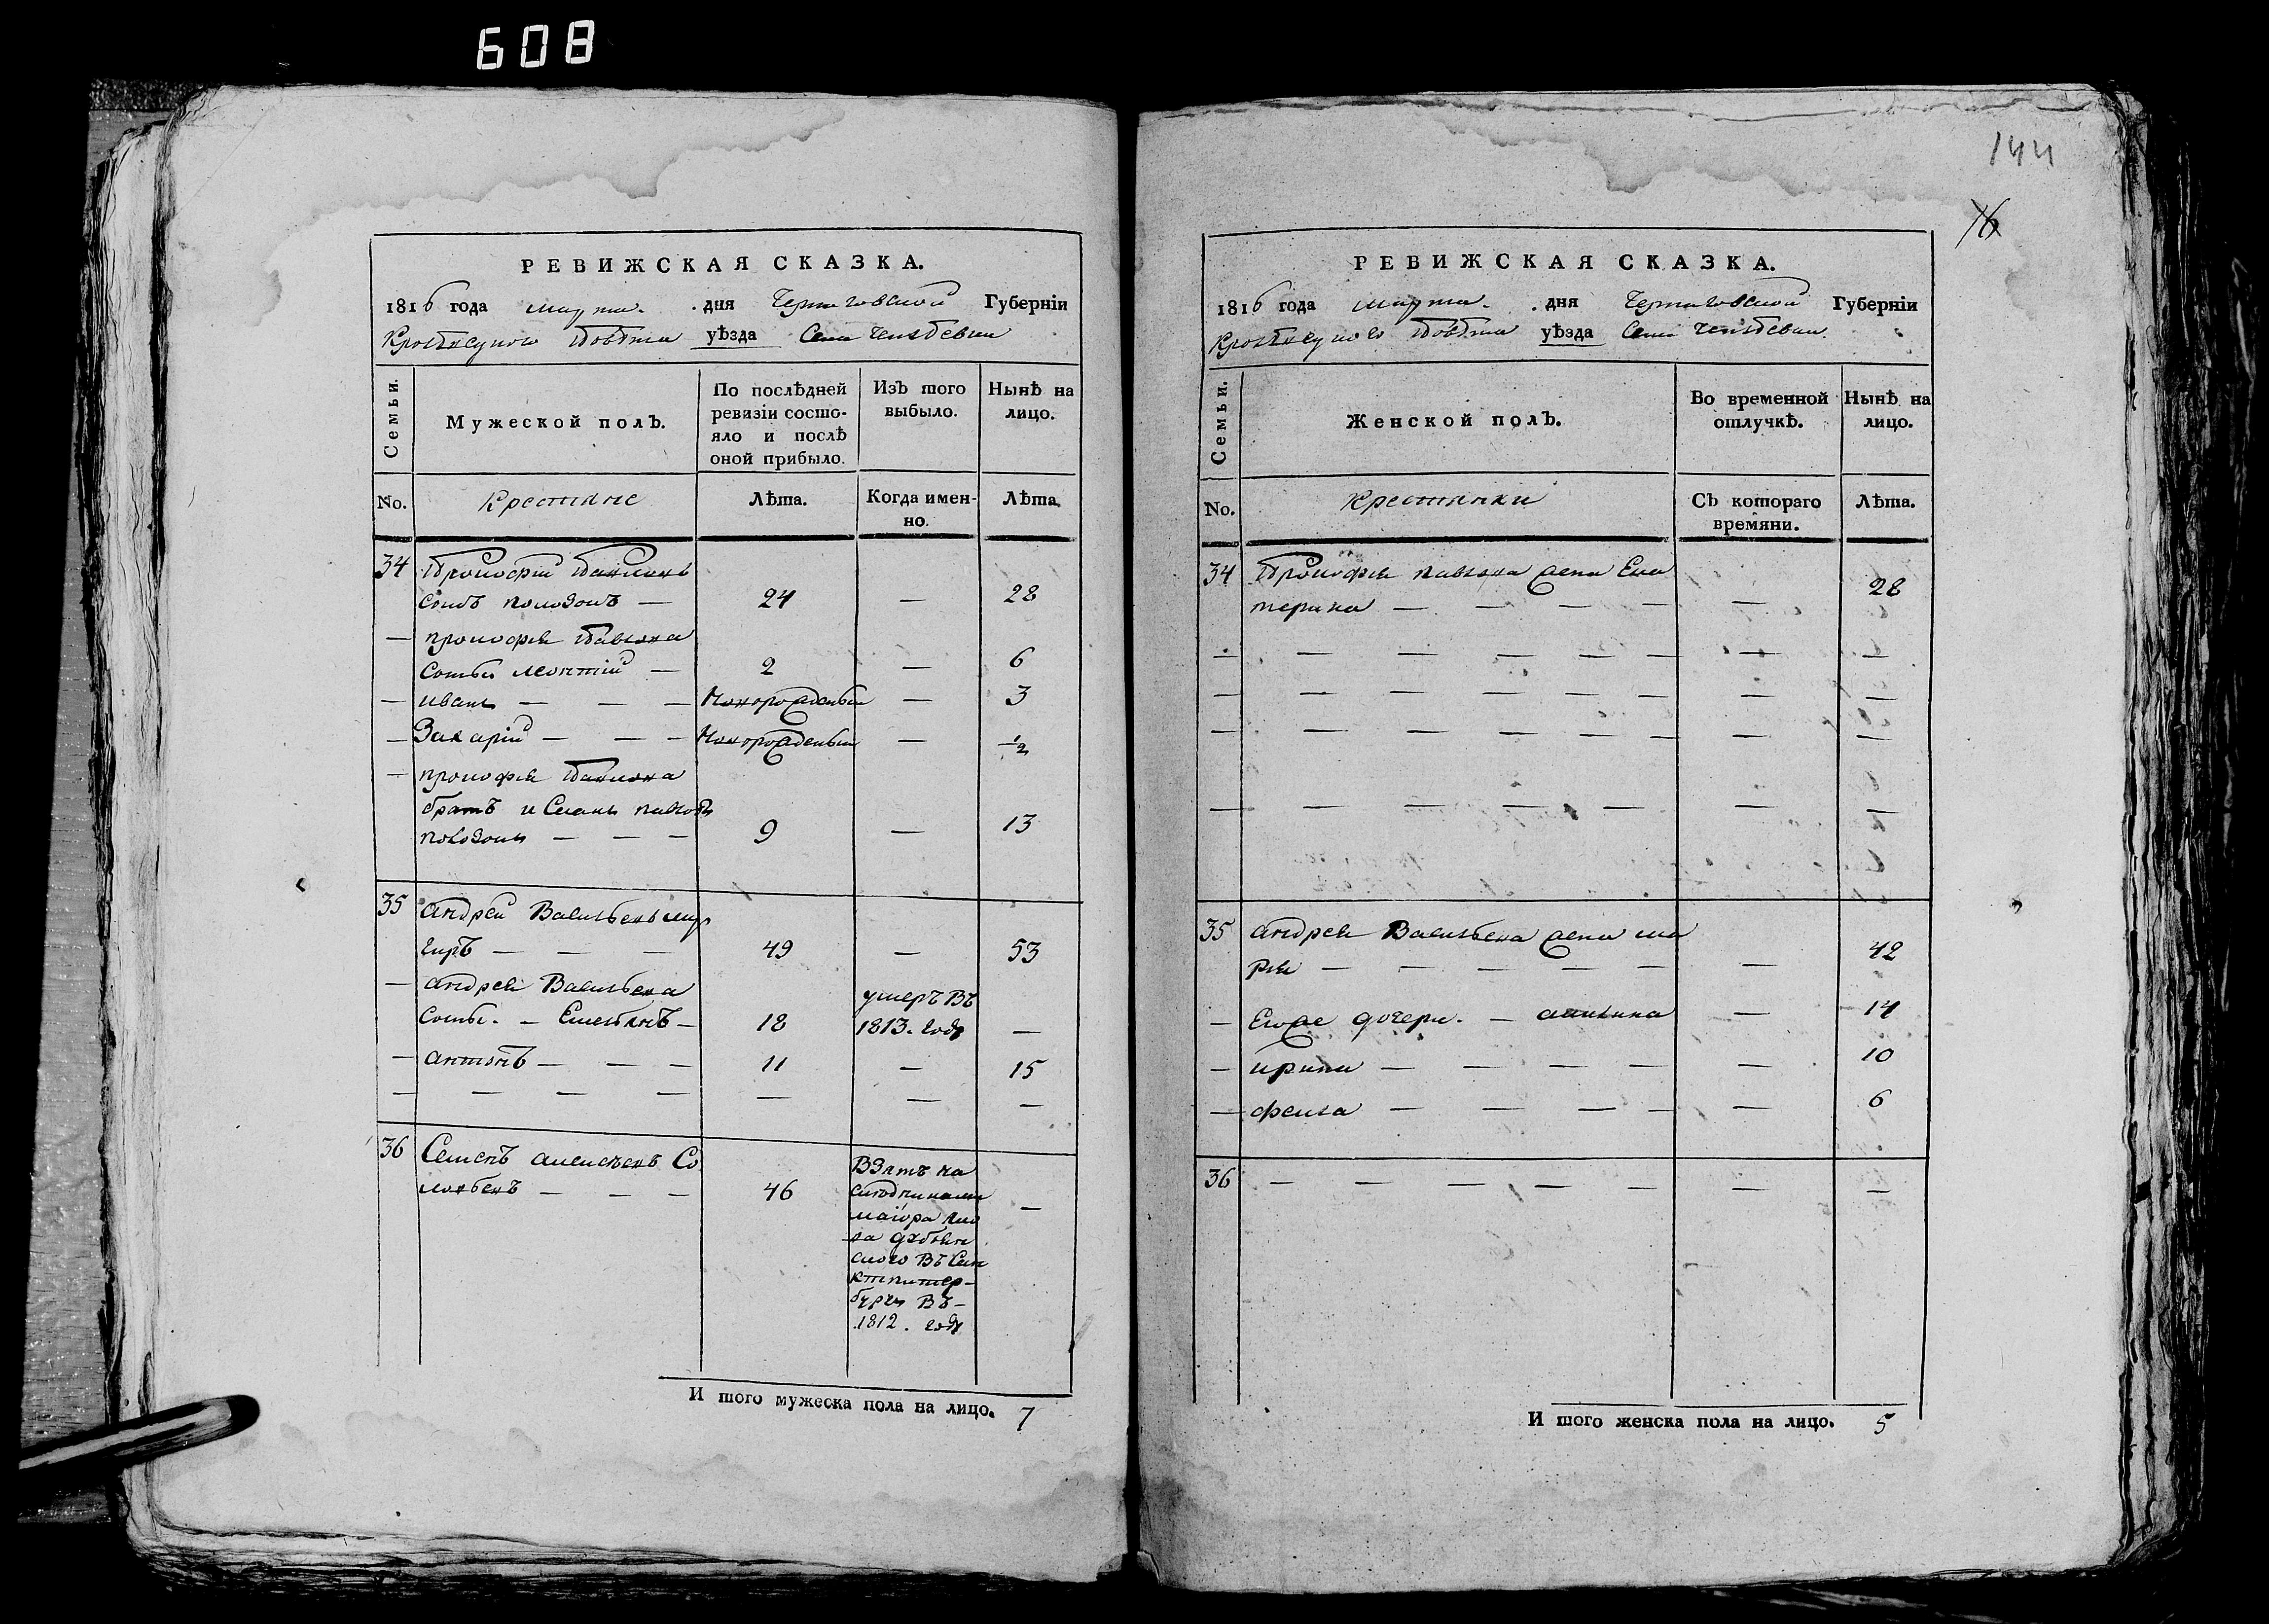 608
РЕВИЖСКАЯ СКАЗКА.
1816 года марта . дня Черниговской Губерніи
Кролевецкого Повѣта уѣзда Села
Семьи.
Мужеской полъ.
По послѣдней ревизіи состо-
яло и послѣ
оной прибыло.
Изъ того
выбыло.
Нынѣ на
лицо.
No.
Крестяне
Лѣта.
Когда имен-
но.
Лѣта.
34 Прокофій Павловъ
сынъ 24 — 28
— прокофія Павлова
сыны леонтій — 2 — 6
— иванъ — — — Новорожденый — 3
— Захарій — — — Новорожденый — 1/2
— прокофія Павлова
братъ
9 — 13
35 андрей Васильевъ
49 — 53
— андрея Васильева
сыны. — Емельянъ — 18 умеръ Въ
1813. году —
— антонъ — — — 11 — 15
— — — — — — —
36 Семенъ алексѣевъ Со
ловьевъ — — — 46 Взятъ на —
маіора
Въ Сан
ктпитер-
бургъ Въ-
.1812. году
И того мужеска пола на лицо. 7
144
16
РЕВИЖСКАЯ СКАЗКА.
1816 года марта . дня Черниговской Губерніи
Кролевецкого Повѣта уѣзда Села
Семьи.
Женской полъ.
Во временной
отлучкѣ.
Нынѣ на
лицо.
No.
Крестянки
Съ котораго
времяни.
Лѣта.
34 Прокофія павлова жена Ека
терина — — — — — 28
— — — — — — — —
— — — — — — — —
— — — — — — — —
— — — — — — —
35 андрея Васильева жена ма
рія — — — — — — 42
— Егоже дочери. — — 14
— ирина — — — — — 10
— — — — — — 6
36 — — — — — — —
И того женска пола на лицо. 5